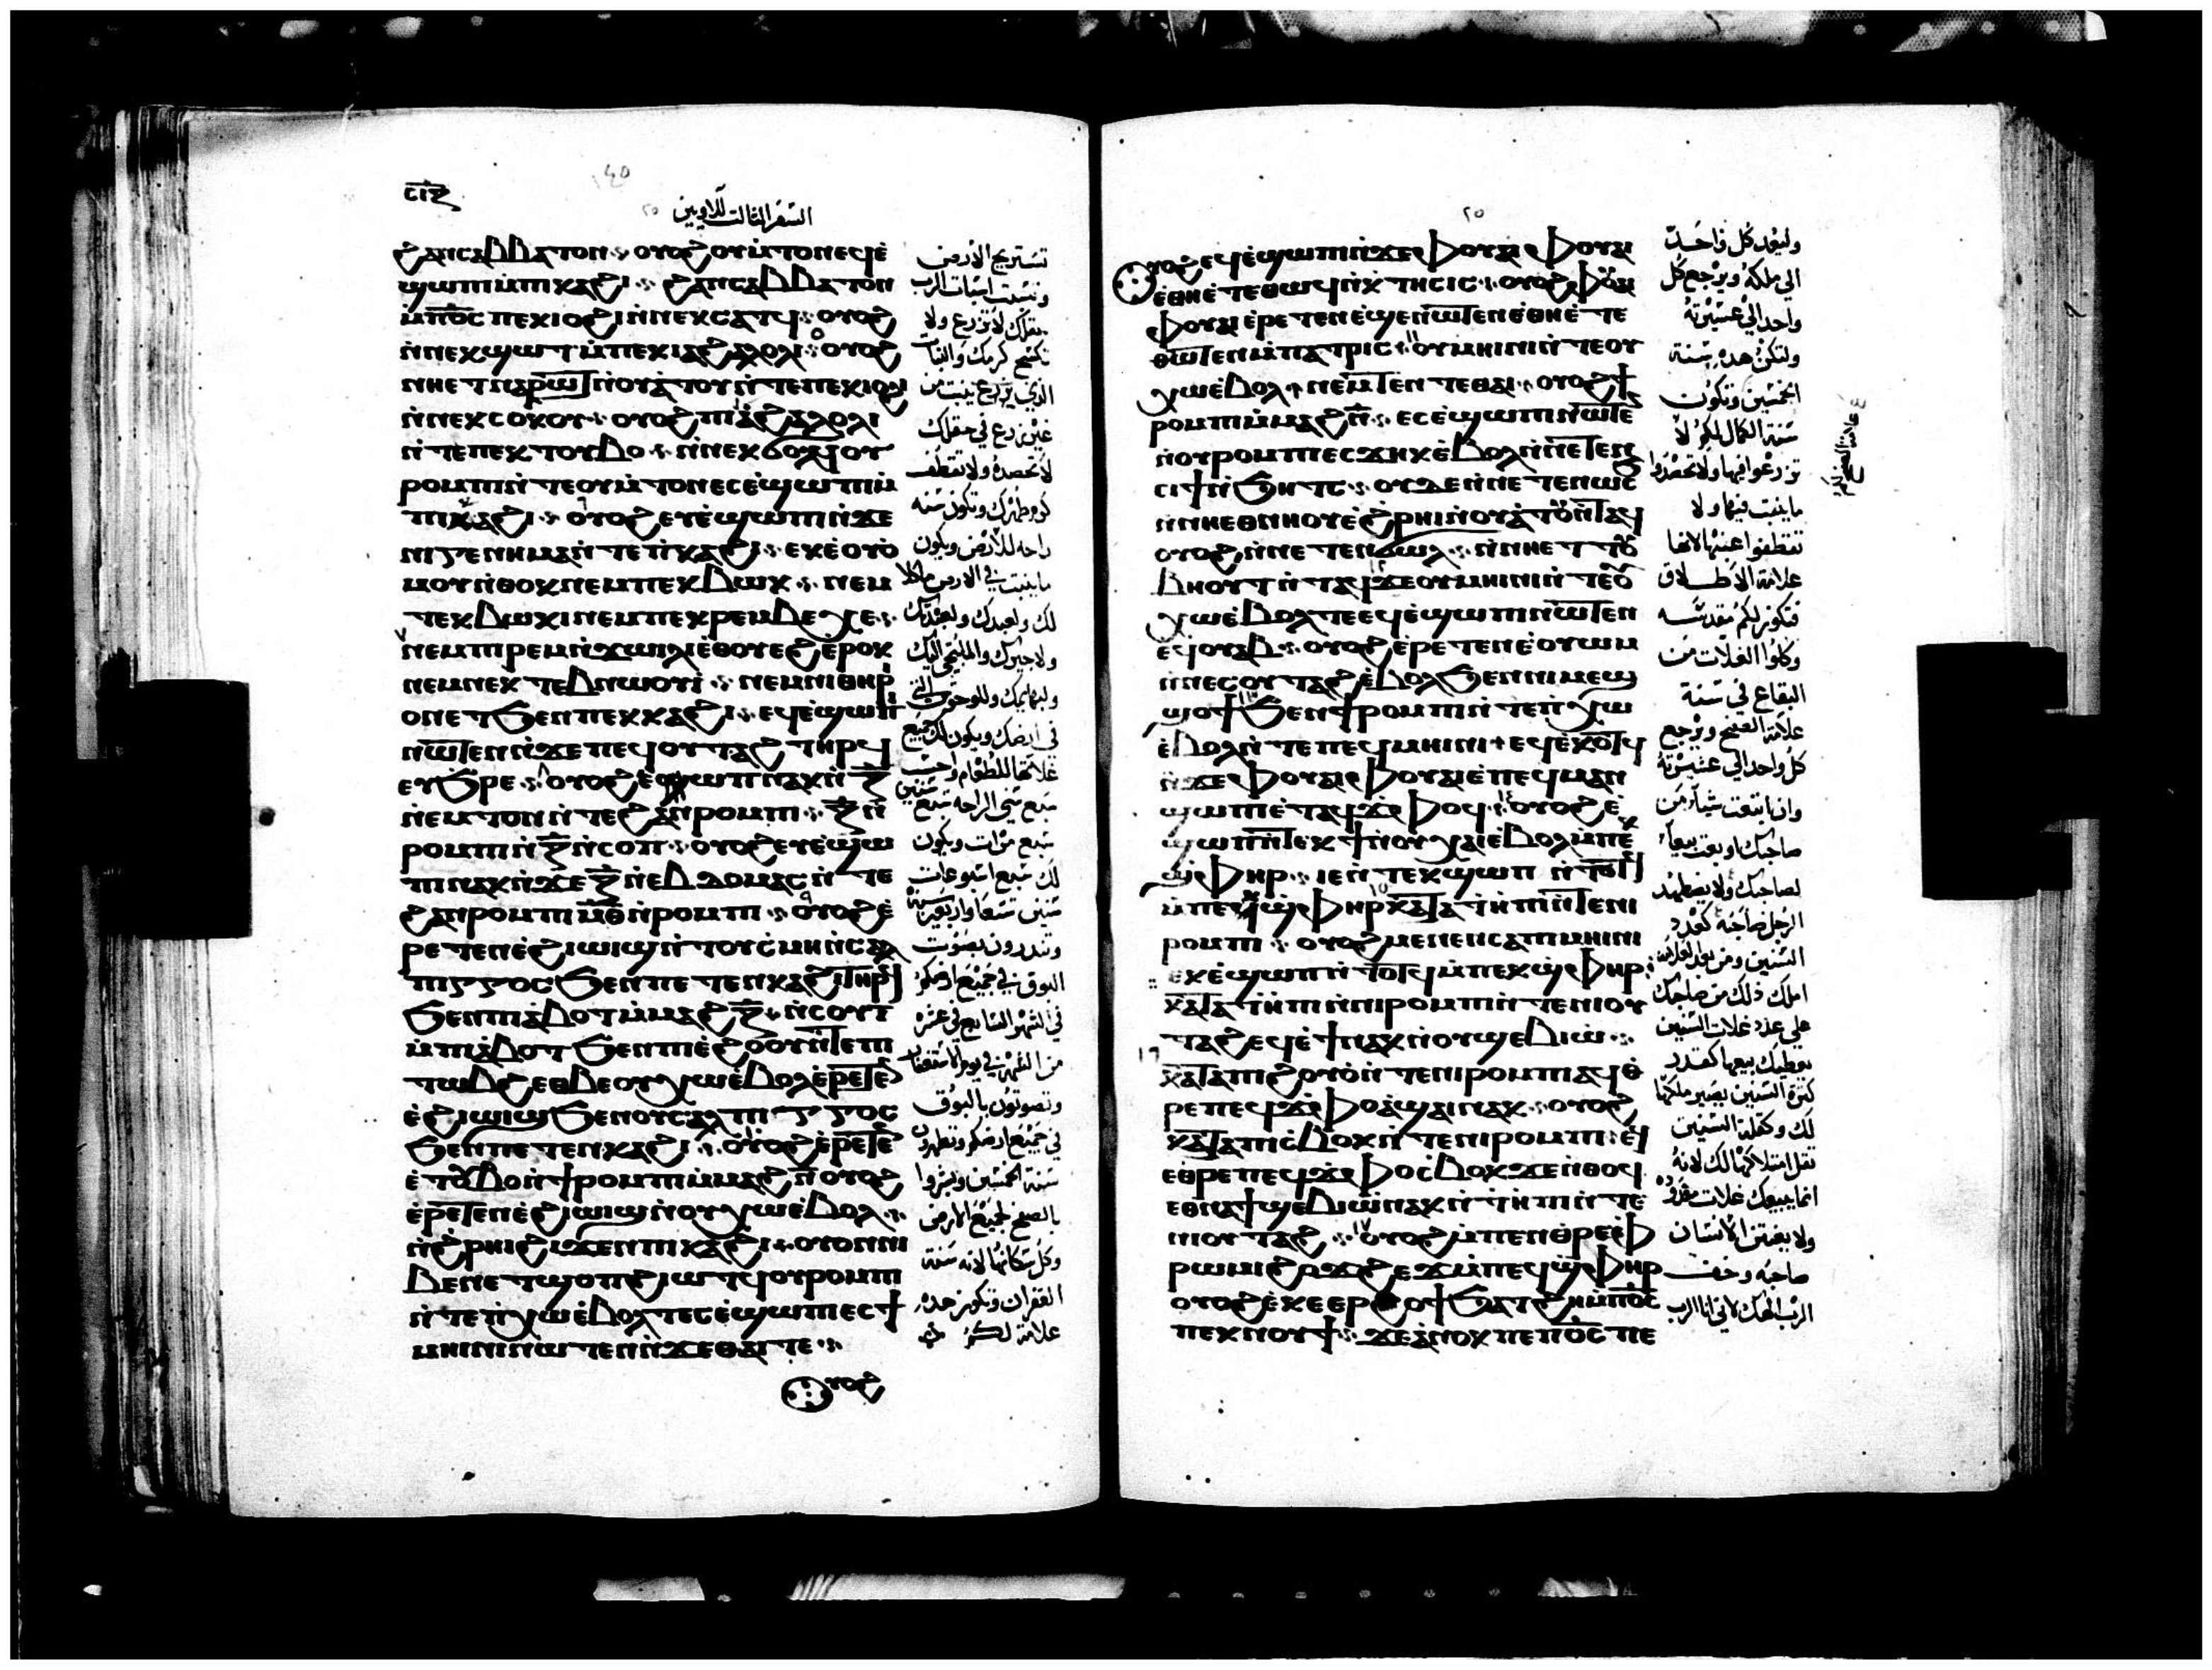 السفر الثالث للاويين
ϩⲁⲛⲥⲁⲃⲃⲁⲧⲟⲛ ⲟⲩⲟϩ ⲟⲩⲙ̀ⲧⲟⲛ ⲉϥⲉ̀
ϣⲱⲡⲓ ⲙ̀ⲡⲓⲕⲁϩⲓ ϩⲁⲛⲥⲁⲃⲃⲁⲧⲟⲛ
ⲙ̀ⲡⲟ̅ⲥ̅ ⲡⲉⲕⲓⲟϩⲓ ⲛ̀ⲛⲉⲕⲥⲁⲧϥ ⲟⲩⲟϩ
ⲛ̀ⲛⲉⲕϣⲱⲧ ⲙ̀ⲡⲉⲕⲓⲁϩⲁⲗⲟⲗⲓ ⲟⲩⲟϩ
ⲛ̀ⲛⲉⲕⲥⲟⲕⲟⲩ ⲟⲩⲟϩ ⲡⲓⲁ̀ϩⲁⲗⲟⲗⲓ
ⲛ̀ⲧⲉ ⲡⲉⲕⲧⲟⲩⲃⲟ ⲛ̀ⲛⲉⲕϭⲟⲗϥⲟⲩ
ⲣⲟⲙⲡⲓ ⲛ̀ⲧⲉ ⲟⲩⲙ̀ⲧⲟⲛ ⲉⲥⲉ̀ϣⲱⲡⲓ ⲙ̀
ⲡⲓⲕⲁϩⲓ ⲟⲩⲟϩ ⲉⲩⲉ̀ϣⲱⲡⲓ ⲛ̀ϫⲉ
ⲙⲟⲩ ⲛ̀ⲑⲟⲕ ⲛⲉⲙ ⲡⲉⲕⲃⲱⲕ ⲛⲉⲙ
ⲧⲉⲕⲃⲱⲕⲓ ⲛⲉⲙ ⲡⲉⲕⲣⲉⲙⲃⲉⲭⲉ
ⲛⲉⲙ ⲡⲓⲣⲉⲙⲛ̀ϫⲱⲓⲗⲓ ⲉ̀ⲑⲟⲩⲉϩ ⲉ̀ⲣⲟⲕ
ⲛⲉⲙ ⲛⲉⲕⲧⲉⲃⲛⲱⲟⲩⲓ̀ ⲛⲉⲙ ⲛⲓⲑⲏⲣ
ⲟⲛ ⲉⲧϧⲉⲛ ⲡⲉⲕⲕⲁϩⲓ ⲉϥⲉ̀ϣⲱⲡⲓ
ⲛⲱⲧⲉⲛ ⲛ̀ϫⲉ ⲡⲉϥⲟⲩⲧⲁϩ ⲧⲏⲣϥ
ⲛ̀ⲉⲙⲧⲟⲛ ⲛ̀ⲧⲉ ϩⲁⲛⲣⲟⲙⲡⲓ ⲍ̅ ⲛ̀
ⲣⲟⲙⲡⲓ ⲛ̀ⲍ̅ ⲛ̀ⲥⲟⲡ ⲟⲩⲟϩ ⲉⲩⲉ̀ϣⲱ
ⲡⲓ ⲛⲁⲕ ⲛ̀ϫⲉ ⲍ̅ ⲛ̀ⲉⲃⲇⲟⲙⲁⲥ ⲛ̀ⲧⲉ
ϩⲁⲛⲣⲟⲙⲡⲓ ⲙ̅ⲑ̅ ⲛ̀ⲣⲟⲙⲡⲓ ⲟⲩⲟϩ ⲉ̀
ⲣⲉⲧⲉⲛⲉ̀ϩⲓⲱⲓϣ ⲛ̀ⲧⲟⲩⲥ̀ⲙⲏ ⲛ̀ⲥⲁⲗ
ⲡⲓⲅⲅⲟⲥ ϧⲉⲛ ⲡⲉⲧⲉⲛⲕⲁϩⲓ ⲧⲏⲣϥ
ϧⲉⲛ ⲡⲓⲁ̀ⲃⲟⲧ ⲙ̀ⲙⲁϩ ⲍ̅ ⲛ̀ⲥⲟⲩ ⲓ̅
ⲙ̀ⲡⲓⲁ̀ⲃⲟⲧ ϧⲉⲛ ⲡⲓⲉ̀ϩⲟⲟⲩ ⲛ̀ⲧⲉ ⲡⲓ
ⲧⲱⲃϩ ⲉⲑⲃⲉ ⲟⲩⲭⲱ ⲉ̀ⲃⲟⲗ ⲉ̀ⲣⲉⲧⲉⲛ
ⲉ̀ϩⲓⲱⲓϣ ϧⲉⲛ ⲟⲩⲥⲁⲗⲡⲓⲅⲅⲟⲥ
ϧⲉⲛ ⲡⲉⲧⲉⲛⲕⲁϩⲓ ⲟⲩⲟϩ ⲉ̀ⲣⲉⲧⲉⲛ
ⲉ̀ⲧⲟⲩⲃⲟ ⲛ̀ϯⲣⲟⲙⲡⲓ ⲙ̀ⲙⲁϩ ⲛ̅ ⲟⲩⲟϩ
ⲉ̀ⲣⲉⲧⲉⲛⲉ̀ϩⲓⲱⲓϣ ⲛ̀ⲟⲩⲭⲱ ⲉ̀ⲃⲟⲗ
ⲛ̀ϩ̀ⲣⲏⲓ ϩⲓϫⲉⲛ ⲡⲓⲕⲁϩⲓ ⲟⲩⲟⲛ ⲛⲓ
ⲃⲉⲛ ⲉⲧϣⲟⲡ ϩⲓⲱⲧϥ ⲟⲩⲣⲟⲙⲡⲓ
ⲛ̀ⲧⲉ ⲛ̀ⲭⲱ ⲉ̀ⲃⲟⲗ ⲧⲉ ⲥⲉ̀ϣⲱⲡⲓ ⲉⲥϯ
ⲙⲏⲓⲛⲓ ⲛⲱⲧⲉⲛ ⲛ̀ϫⲉ ⲑⲁⲓ ⲧⲉ
ⲟⲩⲟϩ
تستريح الارض
وتسبت اسبات الرب
حقلك لا تزرع ولا
تكسح كرمك والنبات
الذي يزرع ينبت من
غير زرع في حقلك
لا تحصده ولا تقطف
كروم طهرك وتكون سنه
راحه للارض ويكون
لك ولعبدك ولعبدتك
في ارضك ويكون لك جميع
سبع سني الراحه سبع سنين
سبع مرات ويكون
لك سبع اسبوعات
سنين تسعا واربعين سنه
وتنذرون بصوت
البوق في جميع ارضكم
في الشهر السابع في عشره
من الشهر في يوم الاستغفار
وتصوتون بالبوق
في جميع ارضكم وتطهرون
سنة الخمسين وبشروا
بالصفح لجميع الارض
وكل سكانها لانه سنة
الغفران وتكون هذه
علامة لكم
ⲟⲩⲟϩ ⲉϥⲉ̀ϣⲱⲡⲓ ⲛ̀ϫⲉ ⲫⲟⲩⲁⲓ ⲫⲟⲩⲁⲓ
ⲉ̀ⲑⲛⲉ̀ⲧⲉⲑⲱϥ ⲛ̀ⲕⲧⲏⲥⲓⲥ ⲟⲩⲟϩ ⲫⲟⲩⲁⲓ
ⲫⲟⲩⲁⲓ ⲉ̀ⲣⲉⲧⲉⲛⲉ̀ϣⲉⲛⲱⲧⲉⲛ ⲉ̀ⲑⲛⲉ̀ⲧⲉ
ⲑⲱⲧⲉⲛ ⲙ̀ⲡⲁⲧⲣⲓⲥ ⲟⲩⲙⲏⲓⲛⲓ ⲛ̀ⲧⲉ ⲟⲩ
ⲭⲱ ⲉ̀ⲃⲟⲗ ⲛⲉⲙⲧⲉⲛ ⲧⲉ ⲑⲁⲓ ⲟⲩⲟϩ ϯ
ⲣⲟⲙⲡⲓ ⲙ̀ⲙⲁϩ ⲛ̅ ⲉⲥⲉ̀ϣⲱⲡⲓ ⲛⲱⲧⲉⲛ
ⲛ̀ⲟⲩⲣⲟⲙⲡⲓ ⲉⲥϫⲏⲕ ⲉ̀ⲃⲟⲗ ⲛ̀ⲛⲉⲧⲉⲛ
ⲥⲓϯ ⲛ̀ϧⲏⲧⲥ ⲟⲩⲇⲉ ⲛ̀ⲛⲉⲧⲉⲛⲱⲥϧ
ⲟⲩⲟϩ ⲛ̀ⲛⲉⲧⲉⲛϭⲱⲗ ⲛ̀ⲛⲏⲉⲧⲧⲟⲩ
ⲃⲏⲟⲩⲧ ⲛ̀ⲧⲁϥ ϫⲉ ⲟⲩⲙⲏⲓⲛⲓ ⲛ̀ⲧⲉ ⲟⲩ
ⲭⲱ ⲉ̀ⲃⲟⲗ ⲡⲉ ⲉϥⲉ̀ϣⲱⲡⲓ ⲛⲱⲧⲉⲛ
ⲉϥⲟⲩⲁⲃ ⲟⲩⲟϩ ⲉ̀ⲣⲉⲧⲉⲛⲉ̀ⲟⲩⲱⲙ
ⲛ̀ⲛⲉⲥⲟⲩⲧⲁϩ ⲉ̀ⲃⲟⲗ ϧⲉⲛ ⲛⲓⲙⲉϣ
ϣⲟϯ ϧⲉⲛ ϯⲣⲟⲙⲡⲓ ⲛ̀ⲧⲉ ⲡⲓⲭⲱ
ⲉ̀ⲃⲟⲗ ⲛ̀ⲧⲉ ⲡⲉϥⲙⲏⲓⲛⲓ ⲉϥⲉ̀ⲕⲟⲧϥ
ⲛ̀ϫⲉ ⲫⲟⲩⲁⲓ ⲫⲟⲩⲁⲓ ⲉ̀ⲡⲉϥⲙⲁⲛ
ϣⲱⲡⲓ ⲉ̀ⲧⲁϥϫⲫⲟϥ ⲟⲩⲟϩ ⲉ̀
ϣⲱⲡ ⲛ̀ⲧⲉⲕϯ ⲛ̀ⲟⲩⲭⲁⲓ ⲉ̀ⲃⲟⲗ ⲙ̀ⲡⲉ
ϣ̀ⲫⲏⲣ ⲓⲉ ⲛ̀ⲧⲉⲕϣⲱⲡ ⲛ̀ⲧⲟⲧϥ
ⲣⲟⲙⲡⲓ ⲟⲩⲟϩ ⲙⲉⲛⲉⲛⲥⲁ ⲡⲓⲙⲏⲓⲛⲓ
ⲉⲕⲉ̀ϣⲱⲡ ⲛ̀ⲧⲟⲧϥ ⲙ̀ⲡⲉⲕϣ̀ⲫⲏⲣ
ⲕⲁⲧⲁ ⲧⲏⲡⲓ ⲛ̀ⲛⲓⲣⲟⲙⲡⲓ ⲛ̀ⲧⲉ ⲛⲓⲟⲩ
ⲧⲁϩ ⲉϥⲉ̀ϯ ⲛⲁⲕ ⲛ̀ⲟⲩϣⲉⲃⲓⲱ̀
ⲕⲁⲧⲁ ⲡⲓϩⲟⲩⲟ̀ ⲛ̀ⲧⲉ ⲛⲓⲣⲟⲙⲡⲓ ⲁϥⲑ
ⲣⲉ ⲡⲉϥϫⲫⲟ ⲁ̀ϣⲁⲓ ⲛⲁⲕ ⲟⲩⲟϩ
ⲕⲁⲧⲁ ⲡⲓⲥ̀ⲃⲟⲕ ⲛ̀ⲧⲉ ⲛⲓⲣⲟⲙⲡⲓ ⲉϥ
ⲉⲑⲣⲉ ⲡⲉϥϫⲫⲟ ⲥ̀ⲃⲟⲕ ϫⲉ ⲛ̀ⲑⲟϥ
ⲉⲑⲛⲁϯϣⲉⲃⲓⲱ̀ ⲛⲁⲕ ⲛ̀ⲧⲏⲡⲓ ⲛ̀ⲧⲉ
ⲛⲓⲟⲩⲧⲁϩ ⲟⲩⲟϩ ⲙ̀ⲡⲉⲛⲑⲣⲉ ⲫ
ⲣⲱⲙⲓ ϩⲟϫϩⲉϫ ⲙ̀ⲡⲉϥϣ̀ⲫⲏⲣ
ⲟⲩⲟϩ ⲉ̀ⲕⲉⲉⲣϩⲟϯ ϧⲁⲧϩⲏ ⲙ̀ⲡⲟ̅ⲥ̅
ⲡⲉⲕⲛⲟⲩϯ ϫⲉ ⲁ̀ⲛⲟⲕ ⲡⲉ ⲡⲟ̅ⲥ̅ ⲡⲉ
وليعد كل واحد
الي ملكه ويرجع كل
واحد الي عشيرته
ولتكن هذه سنة
الخمسين وتكون
سنة الكمال لكم لا
تزرعوا فيها ولا تحصدوا
ما ينبت فيها ولا
تقطفوا عنبها لانها
علامة الاطلاق
فتكون لكم مقدسه
وكلوا الغلات من
البقاع في سنة
علامة الصفح ويرجع
كل واحد الي عشيرته
وان ابتعت شيا من
صاحبك او بعت بيعا
لصاحبك ولا يضطهد
الرجل صاحبه كعدد
السنين ومن بعد العلامه
املك ذلك من صاحبك
علي عدد غلات السنين
يعطيك بيعها كقدر
كثرة السنين يصير ملكها
لك وكقلة السنين
تقل امتلاكها لك لانه
انما يبيعك غلات معدوده
ولا يضغطن الانسان
صاحبه وخف
الرب الهك لاني انا الرب